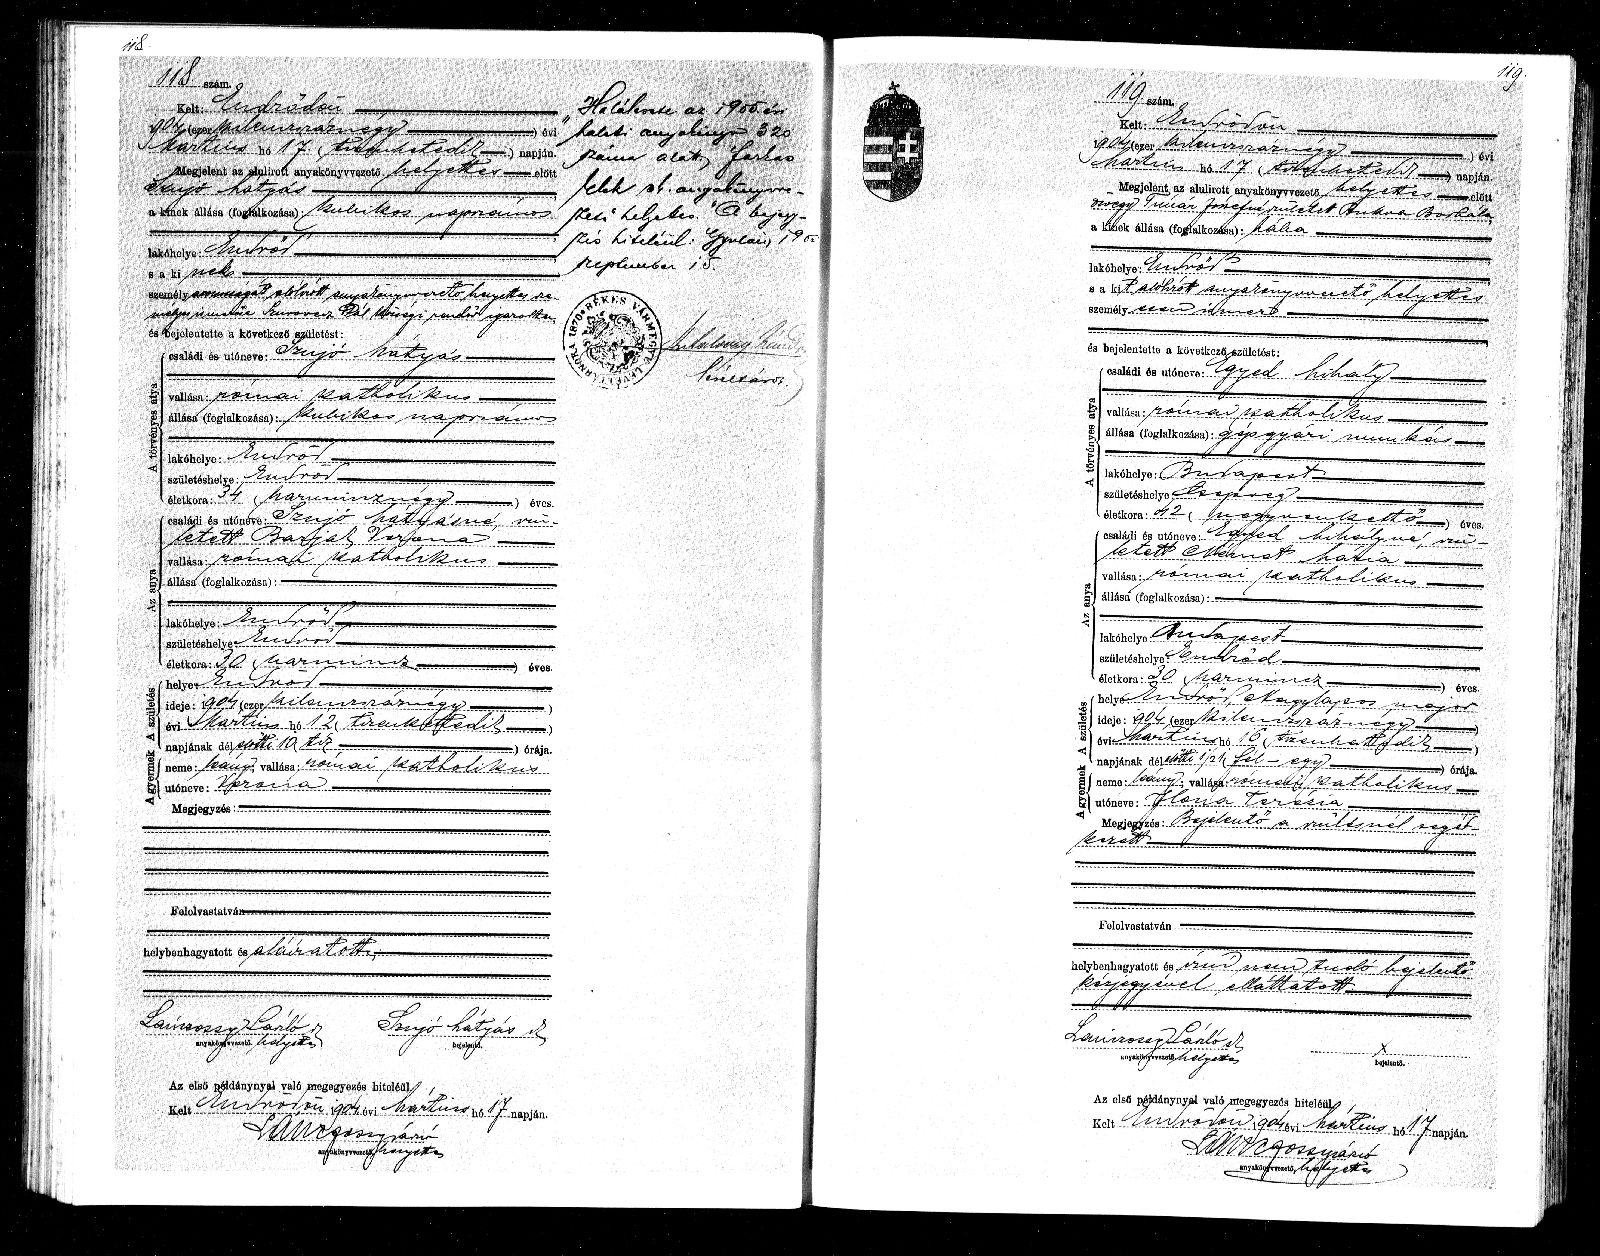 118
118 szám.
Kelt: Endrődön
1904 (ezer kilenczszáznégy) évi
Mártius hó 17 (tizenhetedik) napján.
Megjelent az alulirott anyakönyvvezető helyettes előtt
Szujó Mátyás
a kinek állása (foglalkozása): kubikos napszámos
lakóhelye: Endrőd
s a ki nek
személyazonosságát alólirott anyakönyvvezető helyettes
Pál községi rendőr igazolta
és bejelentette a következő születést:
A törvényes atya
családi és utóneve: Szujó Mátyás
vallása: római katholikus
állása (foglalkozása): kubikos napszámos
lakóhelye: Endrőd
születéshelye: Endrőd
életkora: 34 (harmincznégy) éves.
Az anya
családi és utóneve: Szujó Mátyásné, szü-
letett Barját Verona
vallása: római katholikus
állása (foglalkozása):
lakóhelye: Endrőd
születéshelye: Endrőd
életkora: 30 (harmincz) éves.
A születés
helye: Endrőd
ideje: 1904 (ezer kilenczszáznégy)
évi Mártius hó 12 (tizenkettedik)
napjának dél előtti 10 (tíz) órája.
A gyermek
neme: leány; vallása: római katholikus
utóneve: Verona
Megjegyzés:
Felolvastatván
helybenhagyatott és aláiratott.
Lánczossy László sk
anyakönyvvezető, helyettes
Szujó Mátyás sk
bejelentő.
Az első példánynyal való megegyezés hiteléül
Kelt Endrődön 1904 évi Mártius hó 17 napján.
Lánczossy László
anyakönyvvezető, helyettes
halotti anyakönyv 320
száma alatt, Farkas
sk. anyakönyvve-
zető helyettes. A bejegy-
zés hiteléül: Gyulán, 190
szeptember 15.
BÉKÉS VÁRMEGYE LEVÉLTÁRNOKA 1870
főlevéltáros.
119.
119 szám.
Kelt: Endrődön
1904 (ezer kilenczszáznégy) évi
Mártius hó 17 (tizenhetedik) napján.
Megjelent az alulirott anyakönyvvezető helyettes előtt
özvegy Timár Józsefné született Borbála
a kinek állása (foglalkozása): bába
lakóhelye: Endrőd
s a kit alólirott anyakönyvvezető helyettes
személyesen ismert
és bejelentette a következő születést:
A törvényes atya
családi és utóneve: Egyed Mihály
vallása: római katholikus
állása (foglalkozása): gépgyári munkás
lakóhelye: Budapest
születéshelye
életkora: 42 (negyvenkettő) éves.
Az anya
családi és utóneve: Egyed Mihályné, szü-
letett Czernet Mária
vallása: római katholikus
állása (foglalkozása):
lakóhelye Budapest
születéshelye: Endrőd
életkora: 30 (harmincz) éves.
A születés
helye Endrőd, Nagylapos major
ideje: 1904 (ezer kilenczszáznégy)
évi Mártius hó 16 (tizenhatodik)
napjának dél előtti 1/2 1 (fél-egy) órája.
A gyermek
neme: leány; vallása: római katholikus
utóneve: Ilona Terézia
Megjegyzés: Bejelentő a szülésnél segéd-
kezett
Felolvastatván
helybenhagyatott és írni nem tudó bejelentő
kézjegyével elláttatott
Lánczossy László sk
anyakönyvvezető, helyettes
x
bejelentő.
Az első példánynyal való megegyezés hiteléül
Kelt Endrődön 1904 évi Mártius hó 17 napján.
Lánczossy László
anyakönyvvezető, helyettes